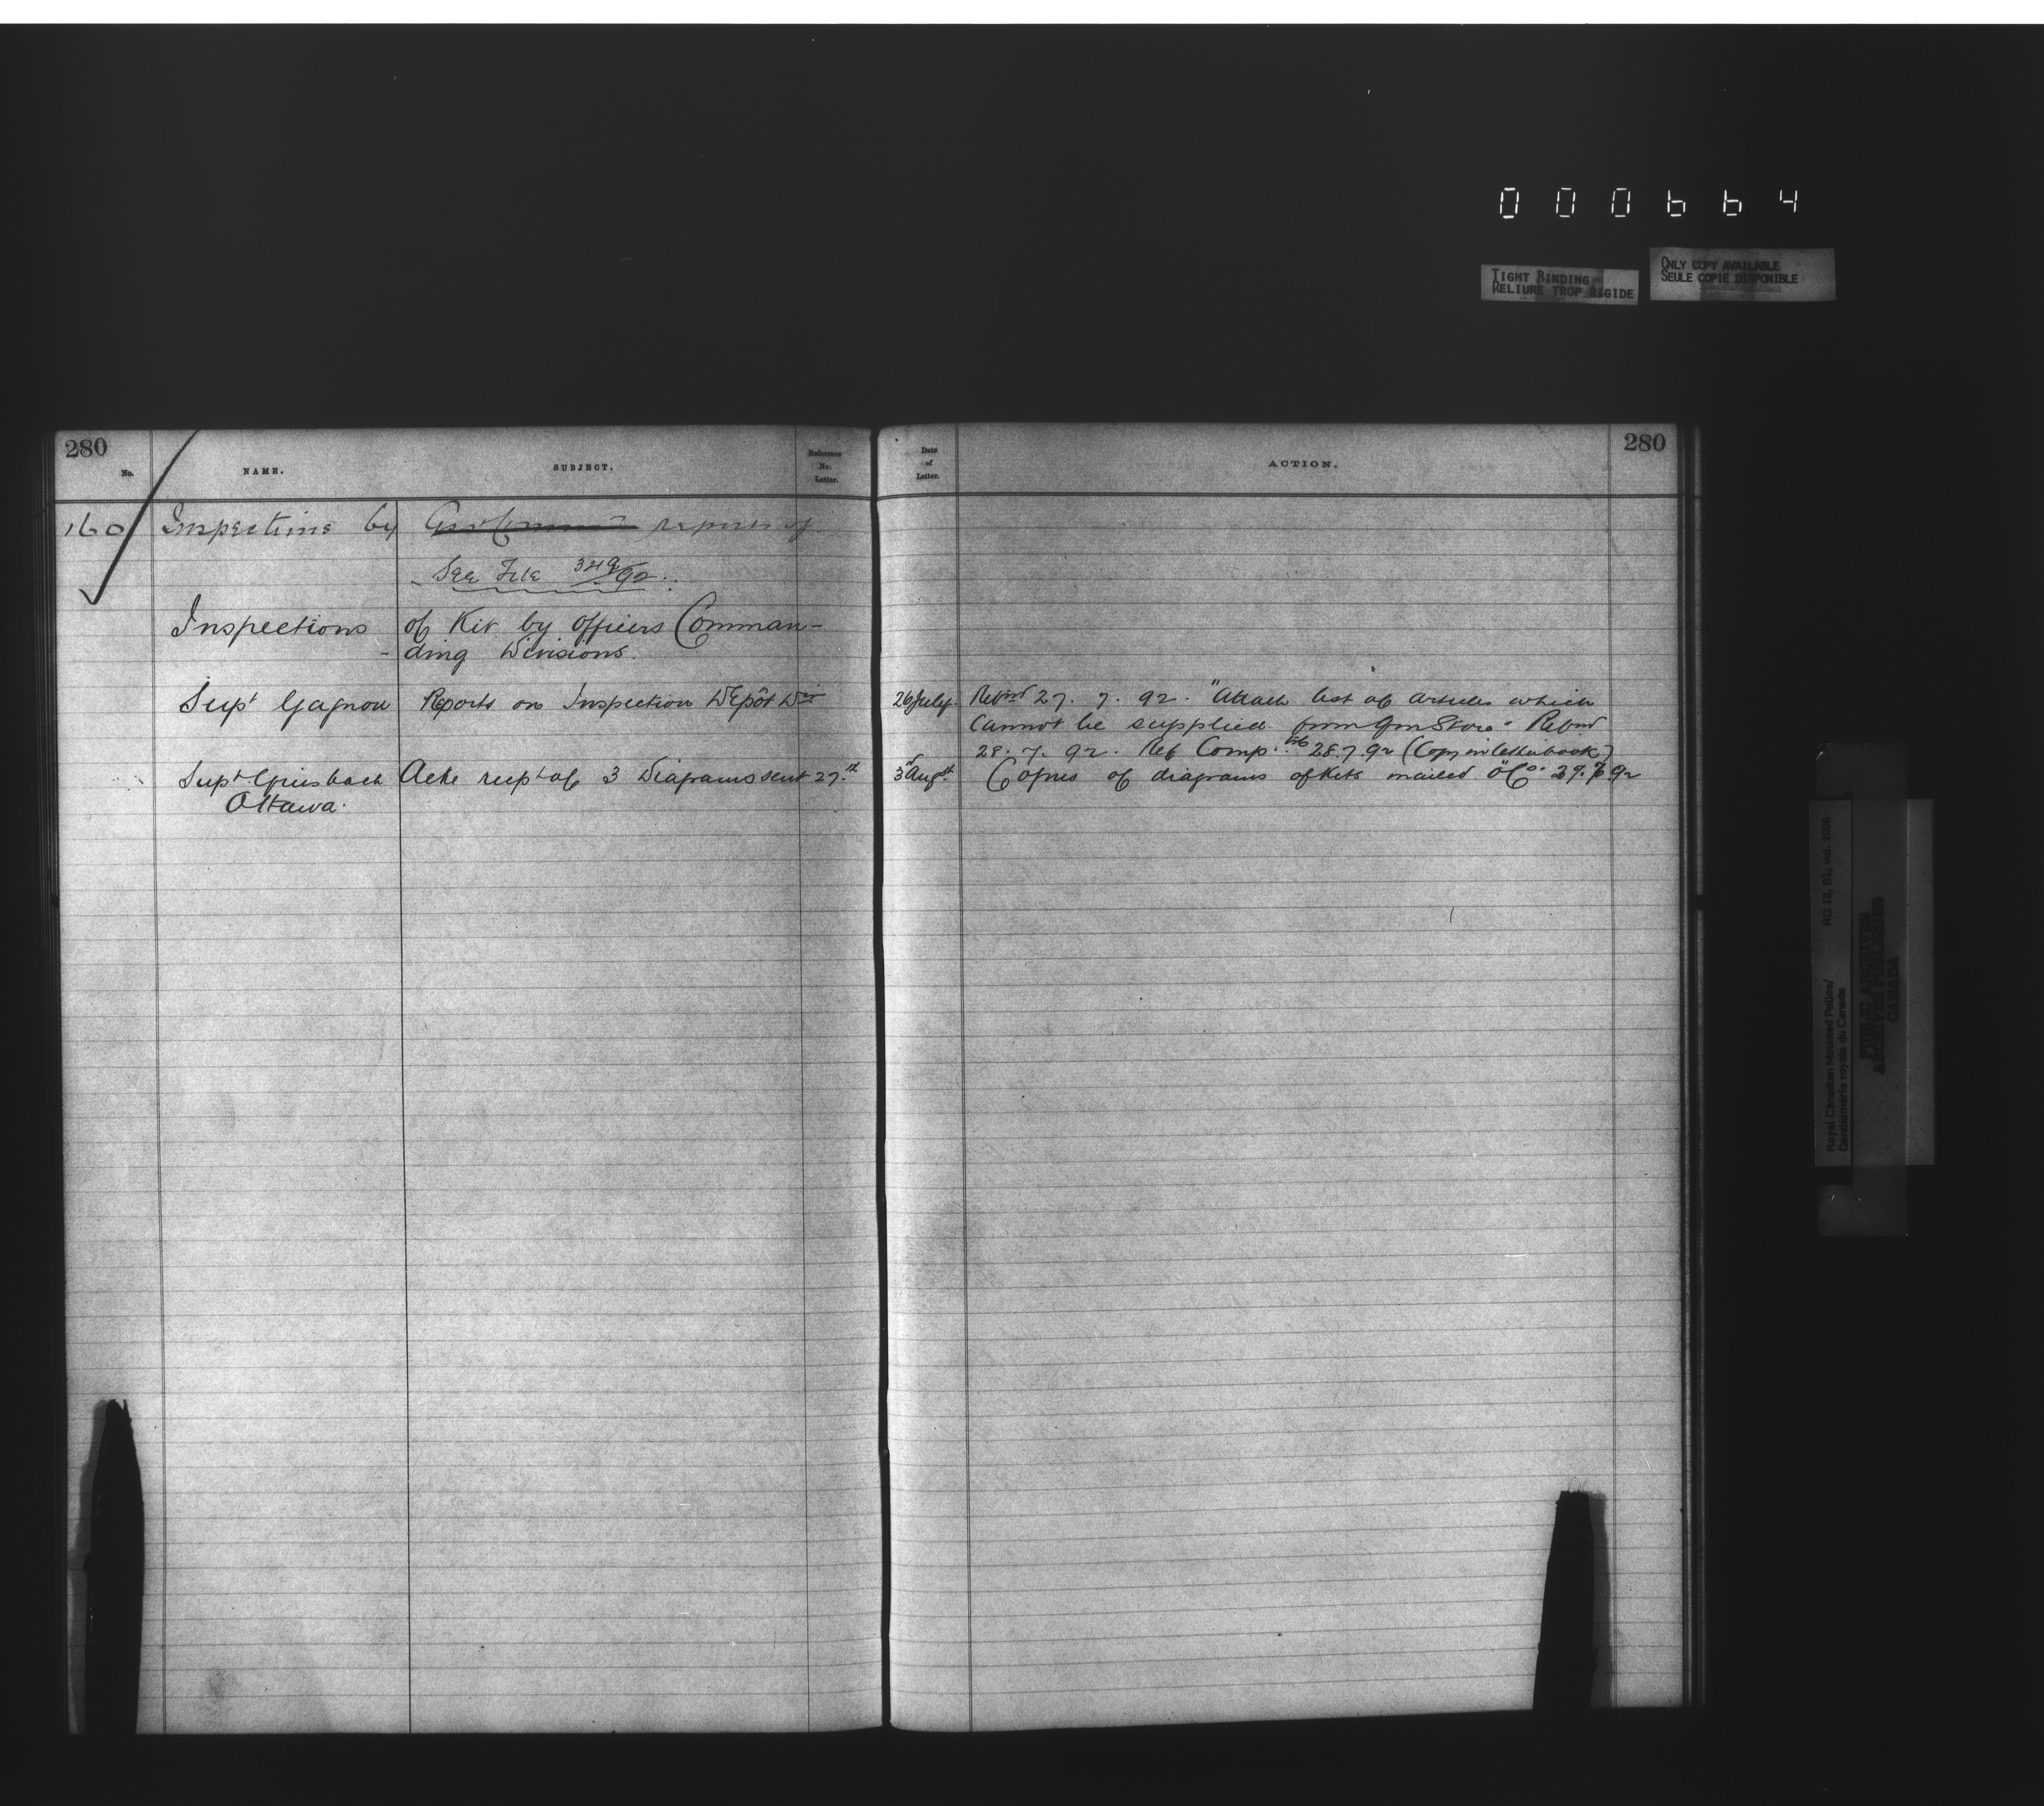 000664
TIGHT BINDING
RELIURE TROP RIGIDE
ONLY COPY AVAILABLE
SEULE COPIE DISPONIBLE
280
No.
NAME.
SUBJECT.
Reference
No.
Letter.
Date
of
Letter.
ACTION.
280
160 Inspections by reports of
See File 349/92
Inspections of Kit by officers Comman-
-ding Divisions.
Supt Gagnon Reports on Inspection Depôt Divn 26 July. Retnd 27. 7. 92. "Attach list of articles which
cannot be supplied from Qm Store" Retnd
28. 7. 92. Ref Comp. 28.7.92 (Copy in letterbook)
Supt Griesbach Ackn recpt of 3 Diagrams sent 27.th 3rd Augst. Copies of diagrams of Kits mailed 29.7.92
Ottawa.
Royal Canadian Mounted Police/
Gendarmerie royale du Canada
RG 18, B1, vol. 2008
PUBLIC ARCHIVES
ARCHIVES PUBLIQUES
CANADA